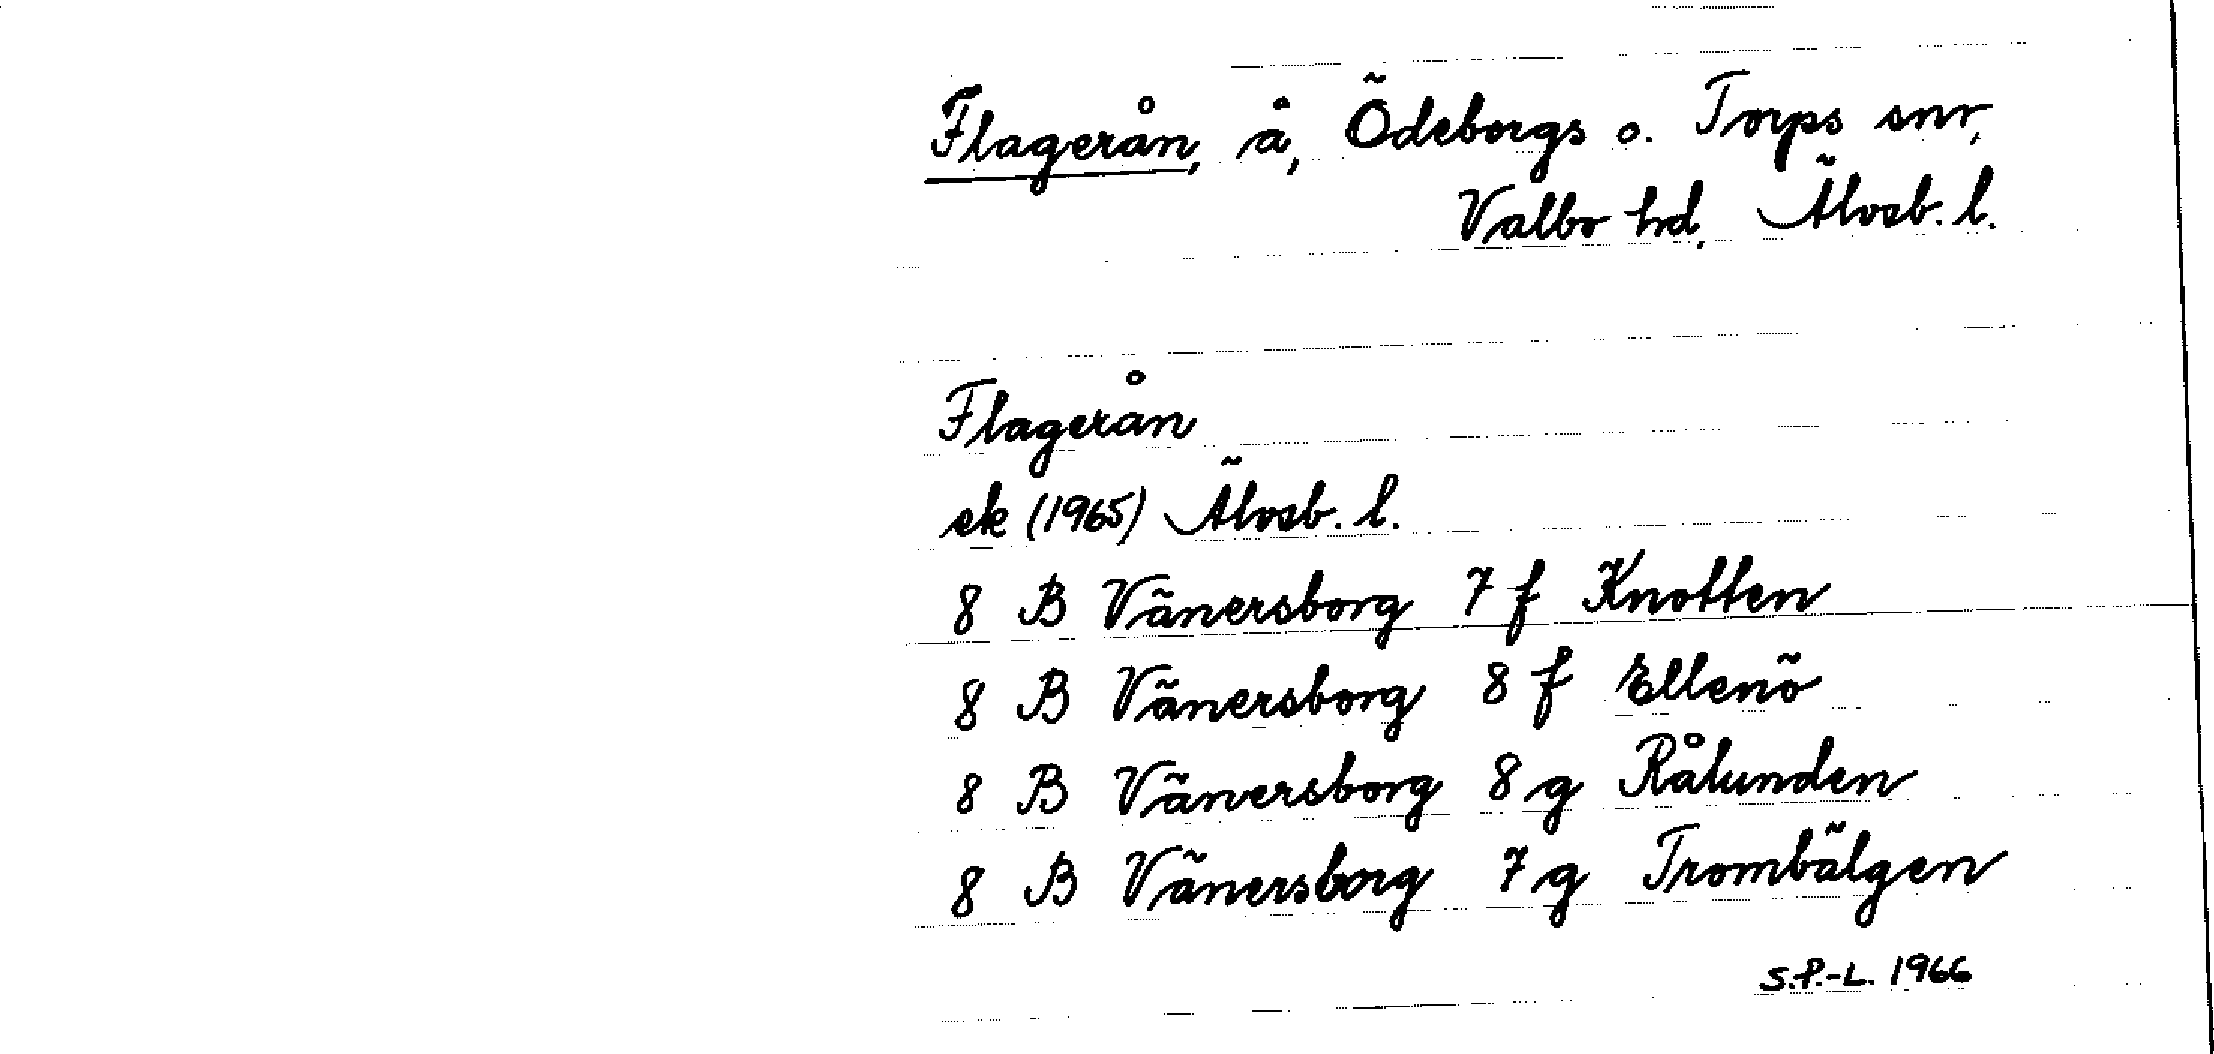 Flagerån, å, Ödeborgs o. Torps snr,
Valbo hd, Älvsb. l.
Flagerån
ek (1965) Älvsb. l.
8 B Vänersborg 7 f Knotten
8 B Vänersborg 8 f Ellenö
8 B Vänersborg 8 g Rålunden
8 B Vänersborg 7 g Trombälgen
S.P.-L. 1966